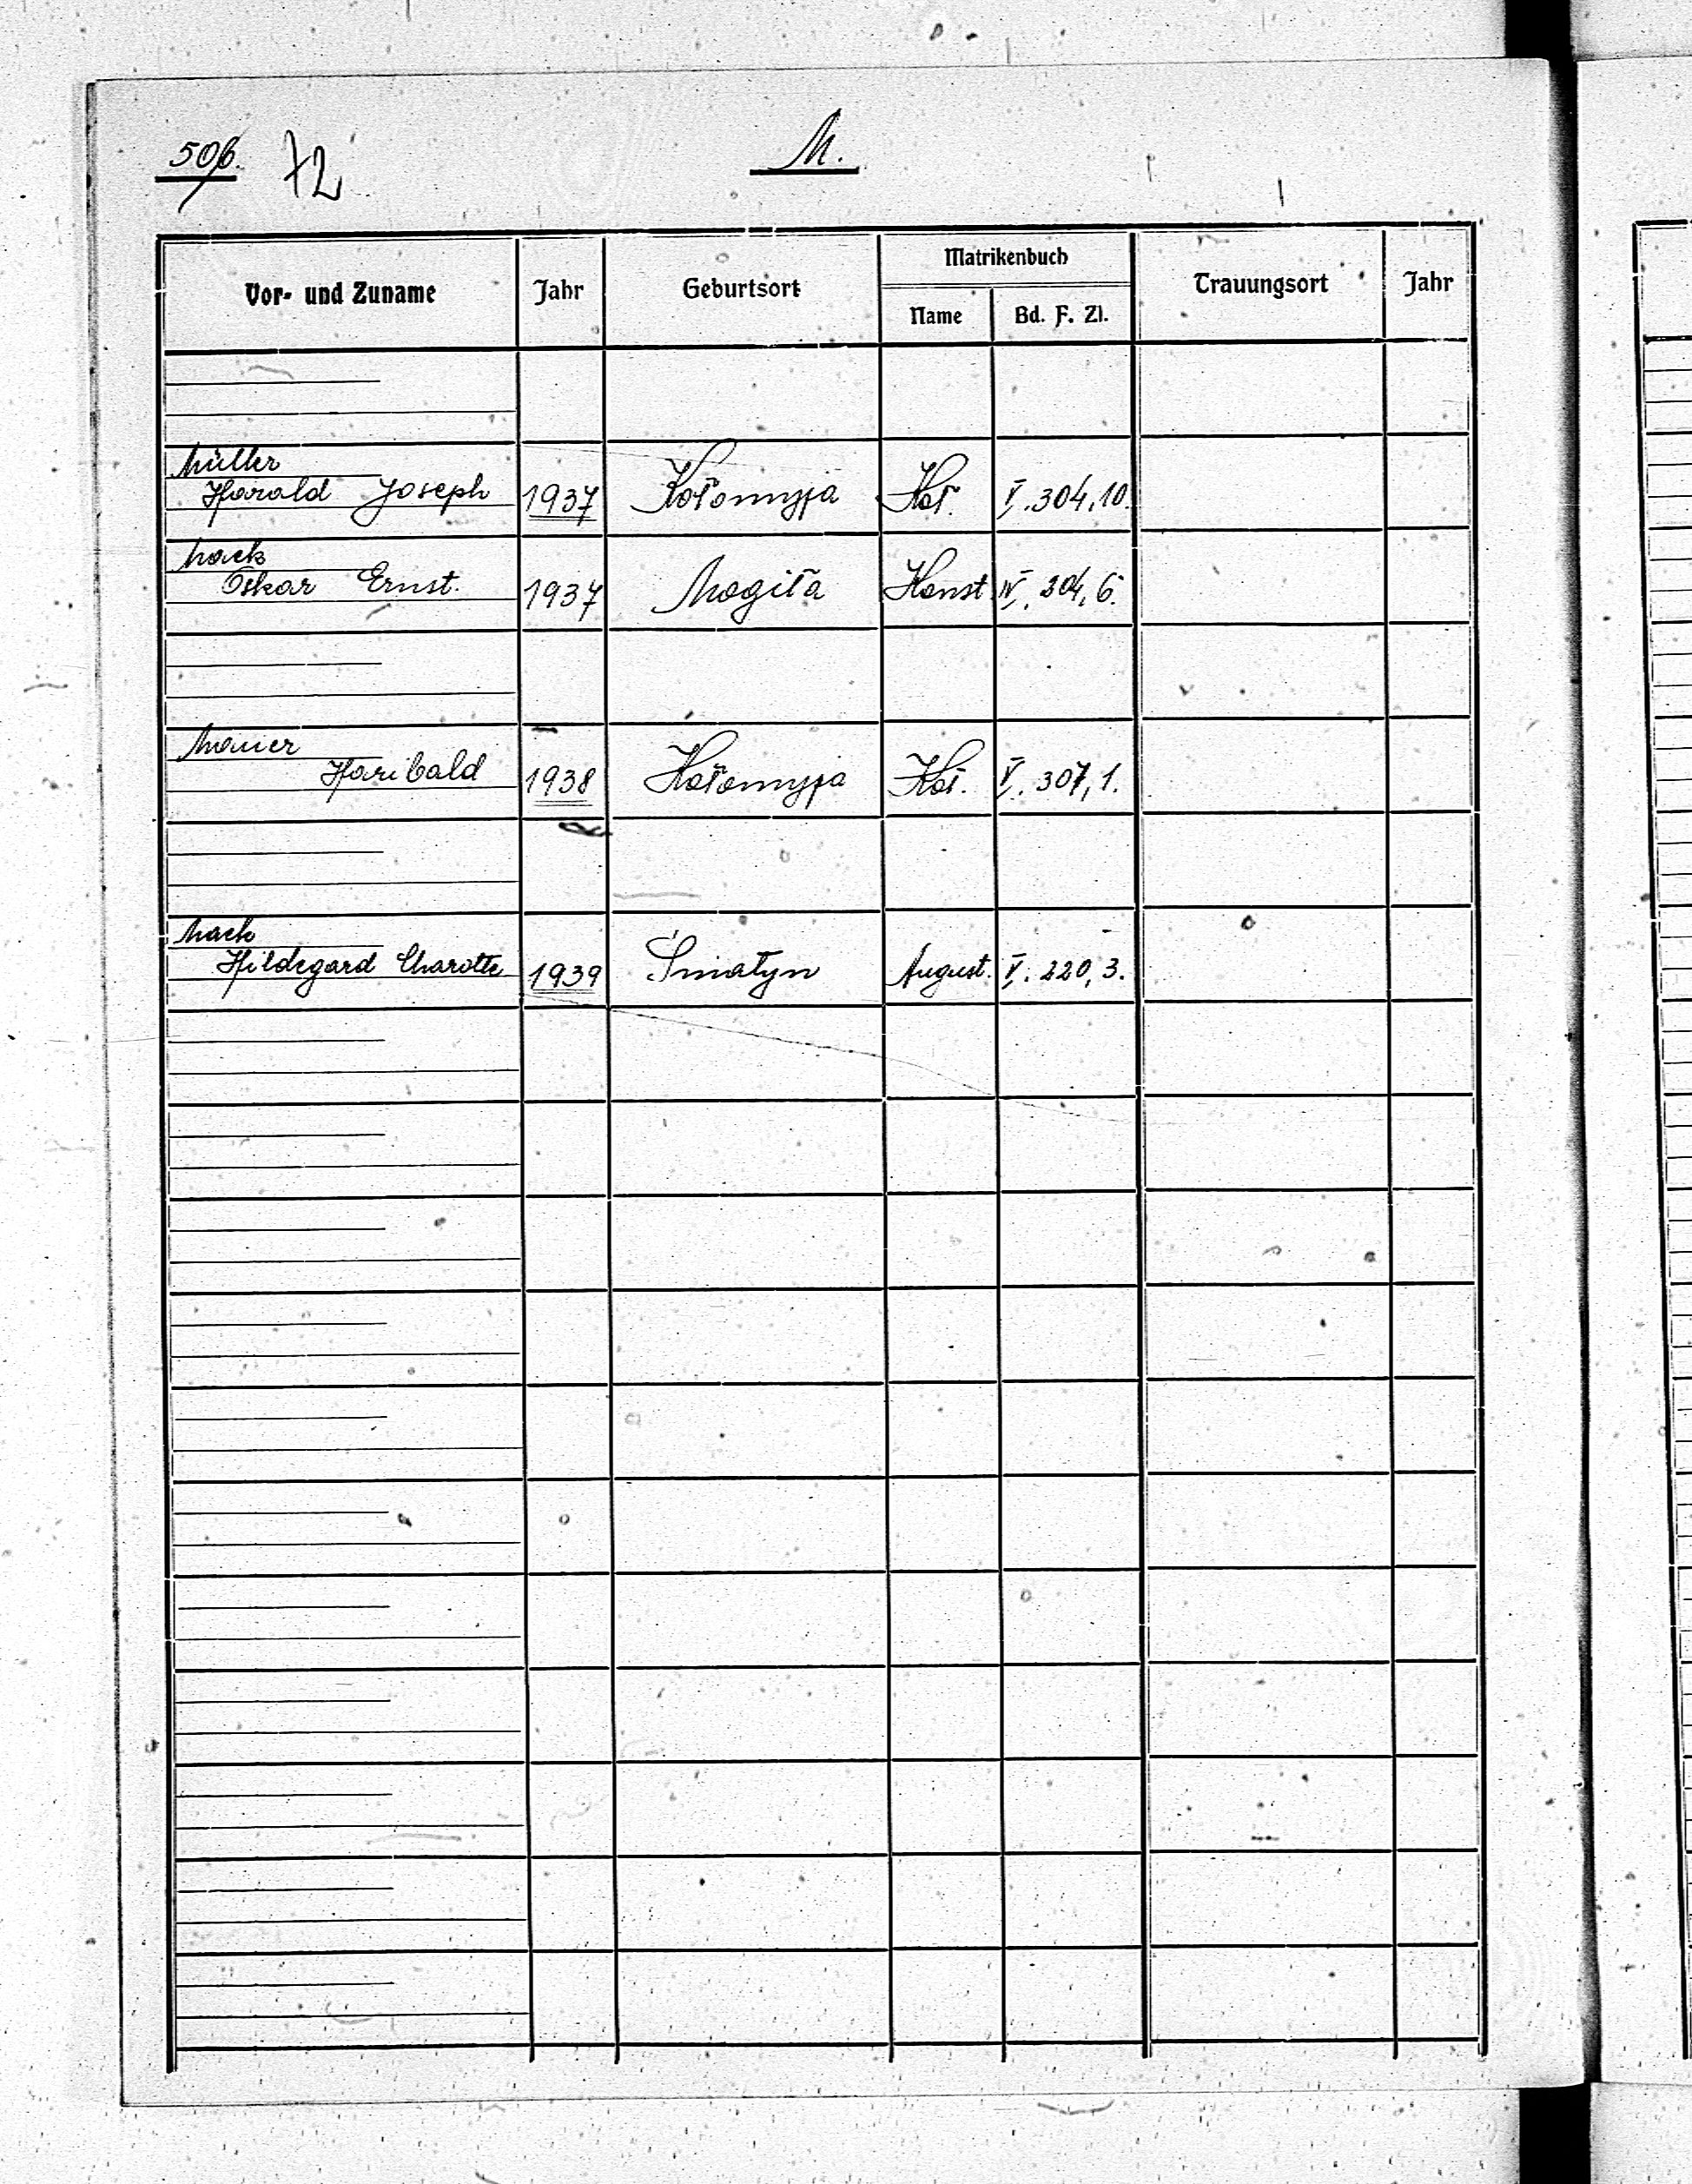 506. 72
M.
Vor- und Zuname Jahr Geburtsort Matrikenbuch Trauungsort Jahr
Name Bd. F. Zl.
Müller
Harald Joseph 1937 Kołomyja Koł. V. 304, 10.
Mack
Oskar Ernst. 1937 Mogiła Konst. IV. 204, 6.
Mauer
Haribald 1938 Kołomyja Koł. V. 307, 1.
Mack
Hildegard Charotte 1939 Śniatyn August. V. 220, 3.